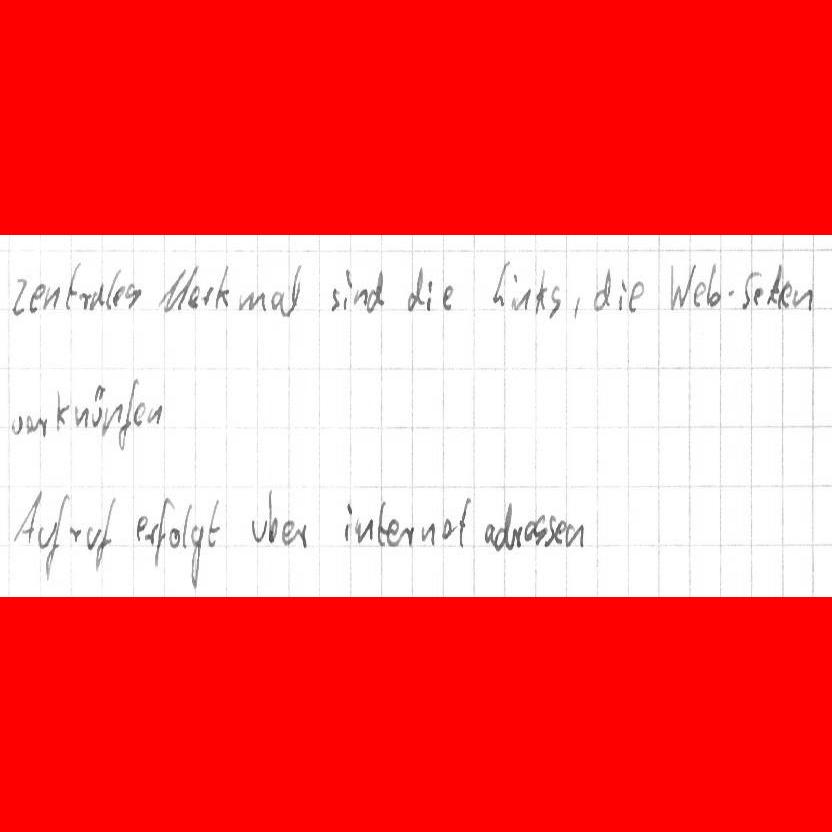 Zentrales Merkmal sind die Links, die Web-Seiten
verknüpfen
Aufruf erfolgt über internet adressen